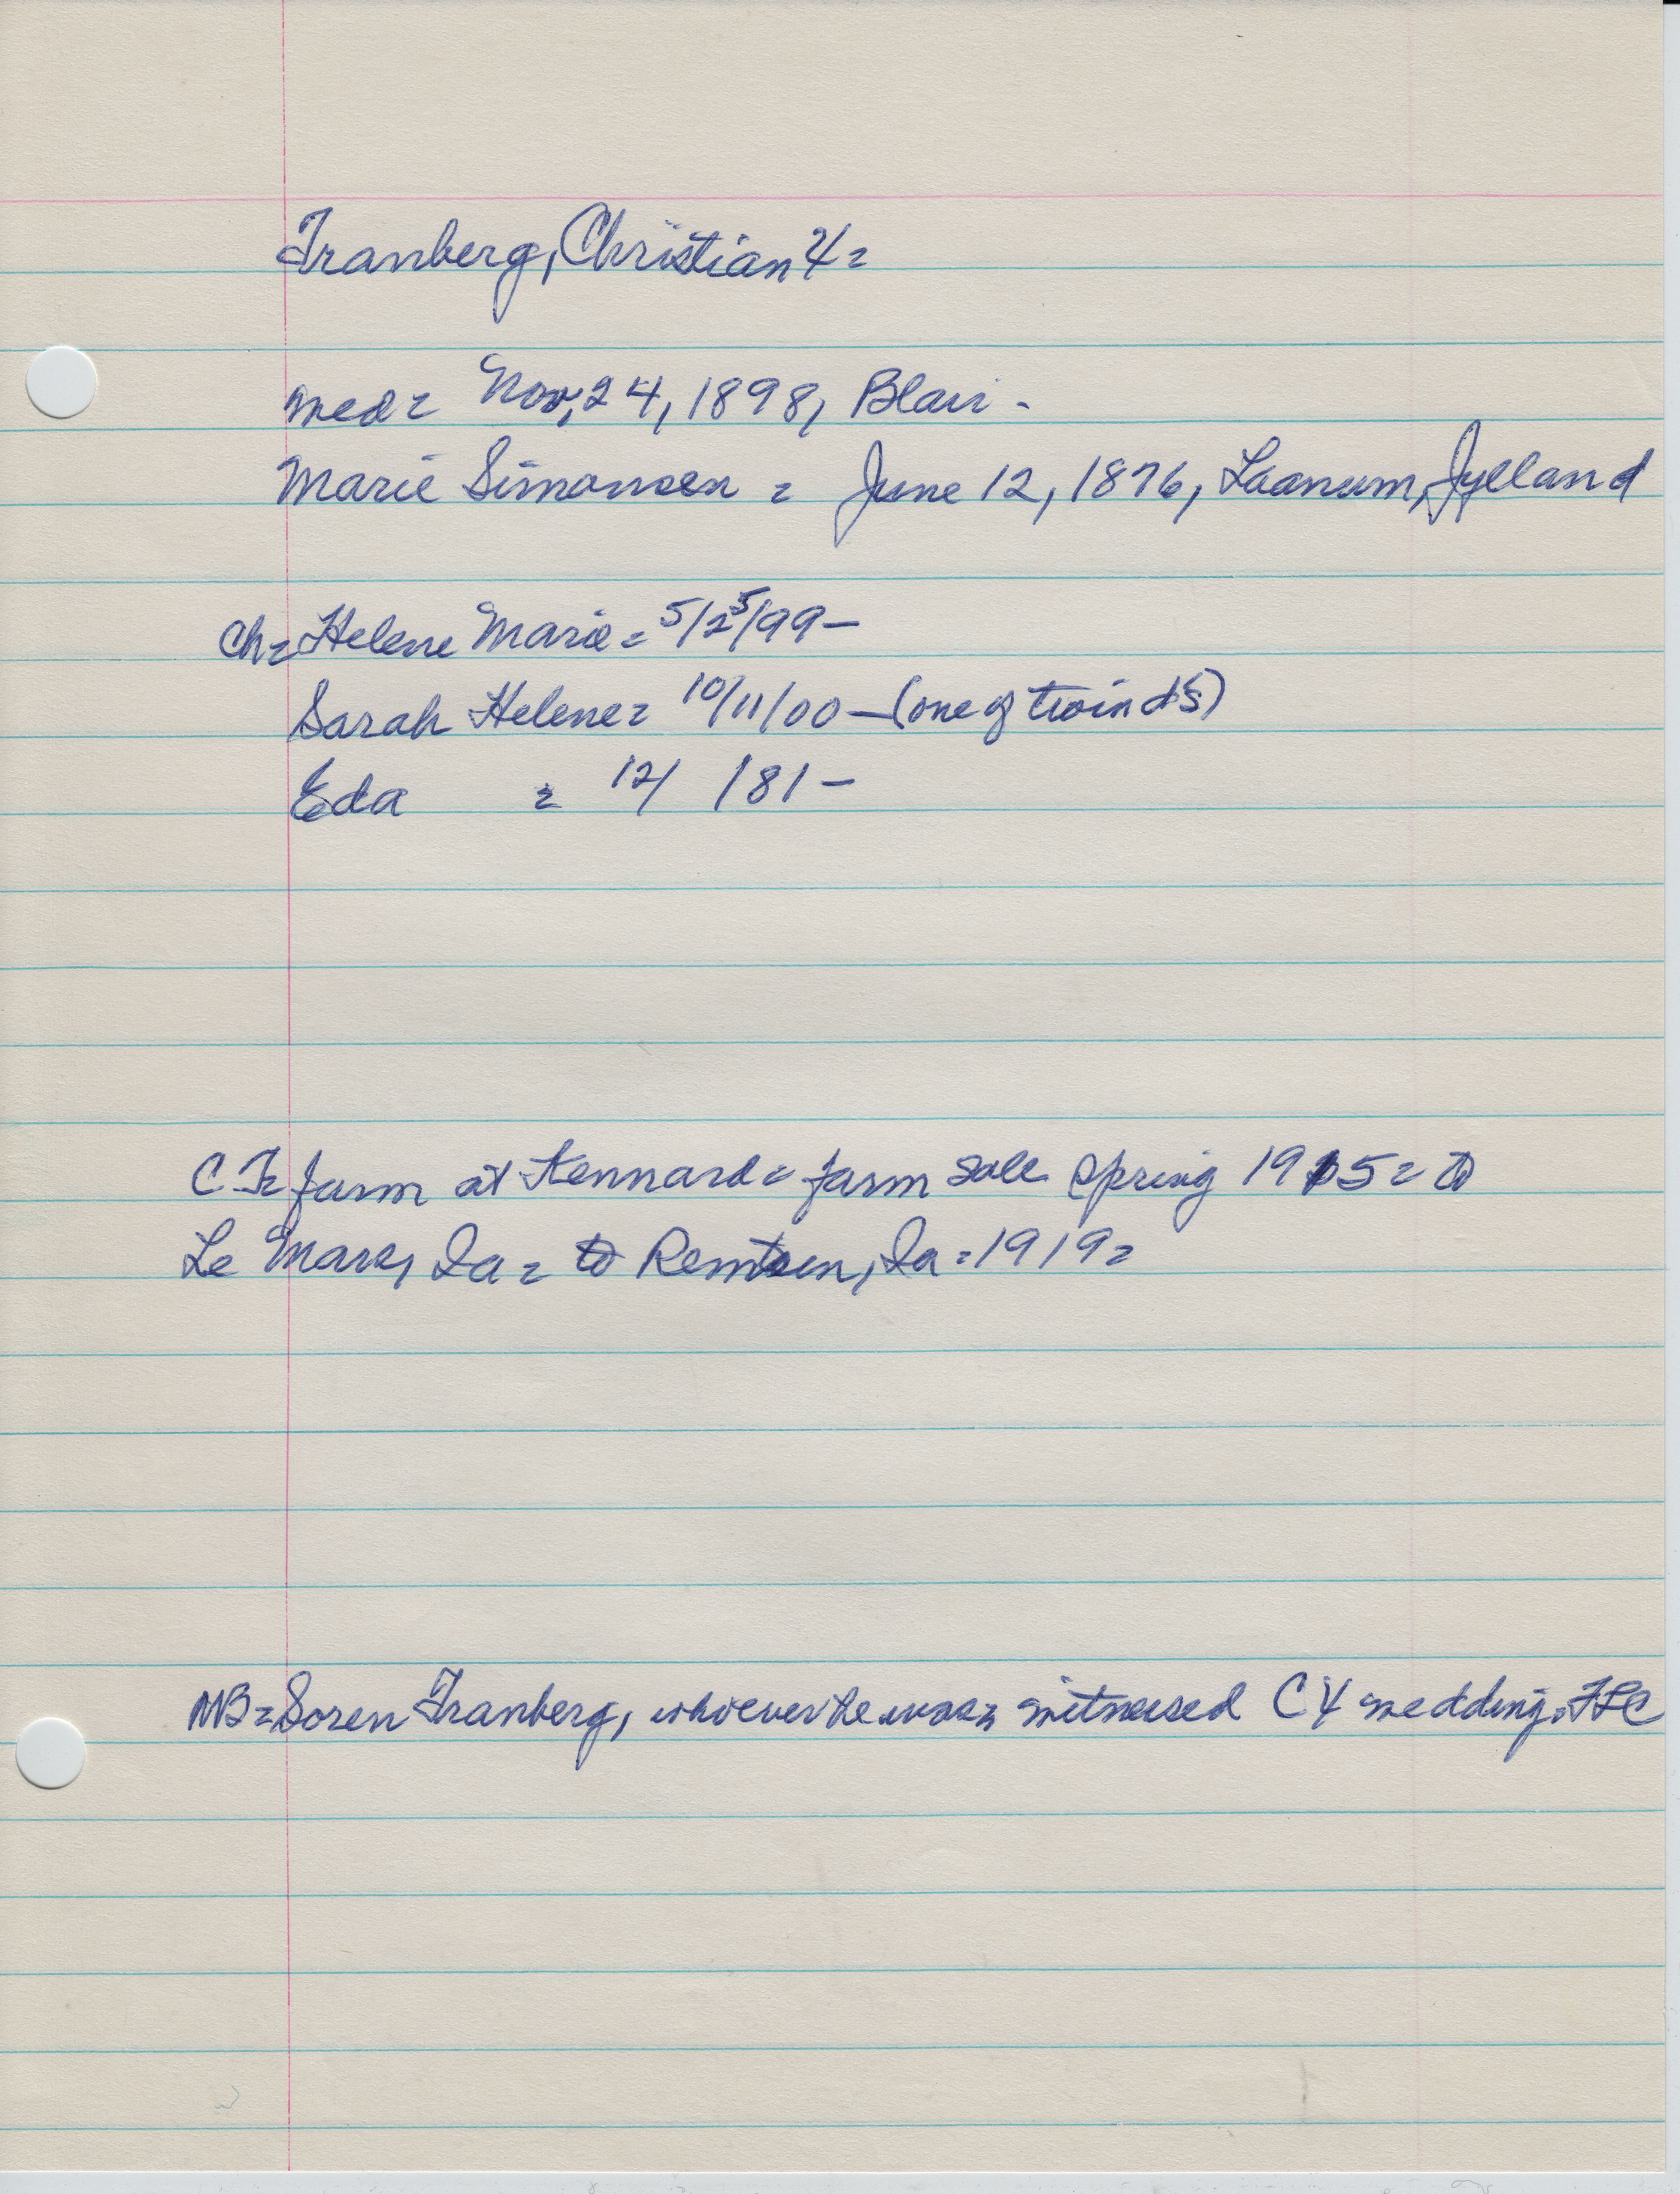 Tranberg, Christian 4=
med= Nov, 24, 1898, Blair -
Marie Simonsen = June 12, 1876, Laanum, Jylland
Ch= Helene Marie = 5/25/99 -
Sarah Helene = 10/11/00 - (one of twin d's)
Eda = 12/ /81 -
C T= farm at Kennard = farm sale spring 1915 = to
Le Mars, Ia = to Remsen, Ia = 1919 =
NB = Soren Tranberg, whoever he was, witnessed C 4 wedding.